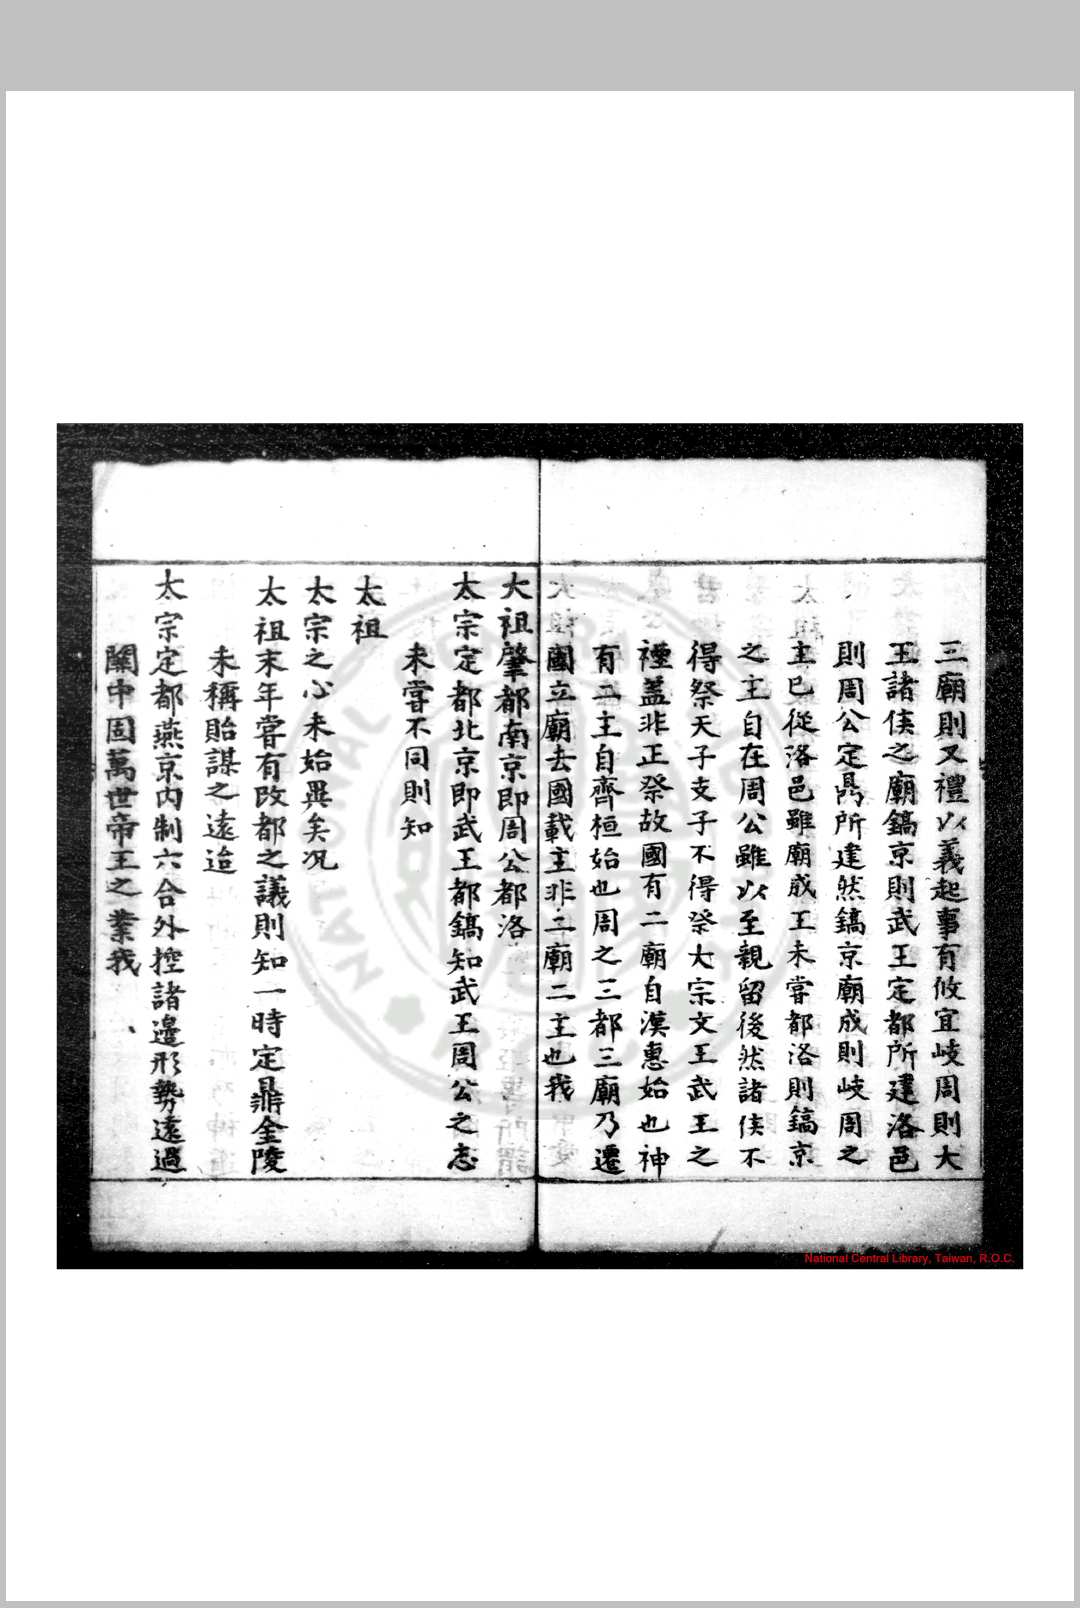 三廟則又禮以義起事有攸宜岐周則大
王諸侯之廟鎬京則武王定都所建洛邑
則周公定鼎所建然鎬京廟成則岐周之
主已從洛邑雖廟成王未嘗都洛則鎬京
之主自在周公雖以至親留後然諸侯不
得祭天子支子不得祭大宗文王武王之
禋蓋非正祭故國有二廟自漢惠始也神
有二主自齊桓始也周之三都三廟乃遷
國立廟去國載主非二廟二主也我
太祖肇都南京即周公都洛
太宗定都北京即武王都鎬知武王周公之志
未嘗不同則知
太祖
太宗之心未始異矣况
太祖末年嘗有改都之議則知一時定鼎金陵
未稱貽謀之遠迨
太宗定都燕京内制六合外控諸邊形勢遠過
關中固萬世帝王之業我
National Central Library, Taiwan, R.O.C.